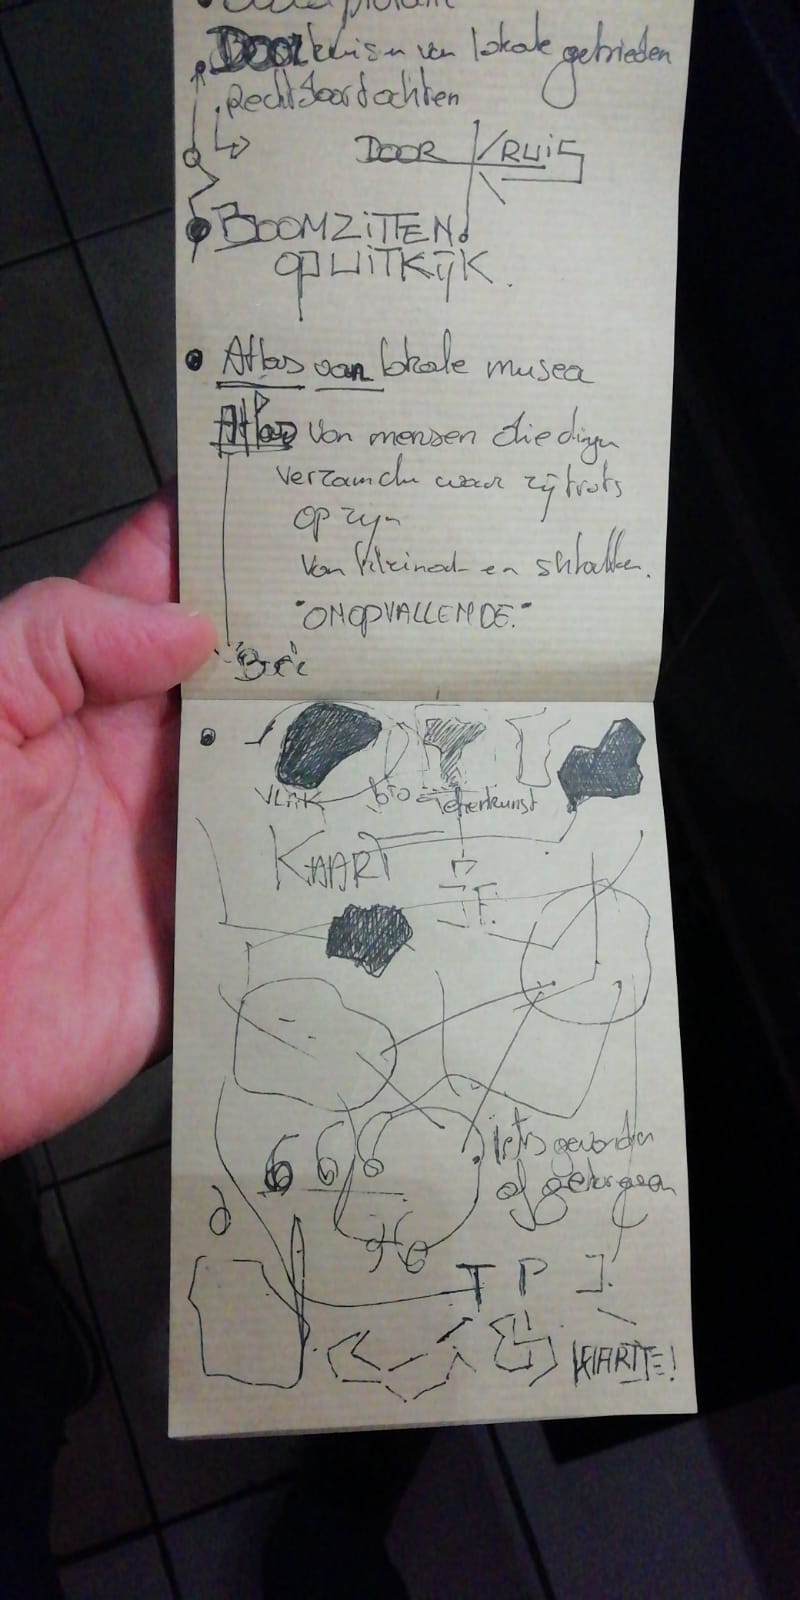 DOORkruisen van lokale gebieden
Rechtdoortochten
DOOR KRUIS
BOOMZITTEN.
OP UITKIJK.
Atlas van lokale musea
Atlas van mensen die dingen
verzamelen waar zij trots
op zijn
van kleinood en
"ONOPVALLENDE."
VLAK
KAART
iets gevonden
of gekregen
T P J.
KAARTTE!